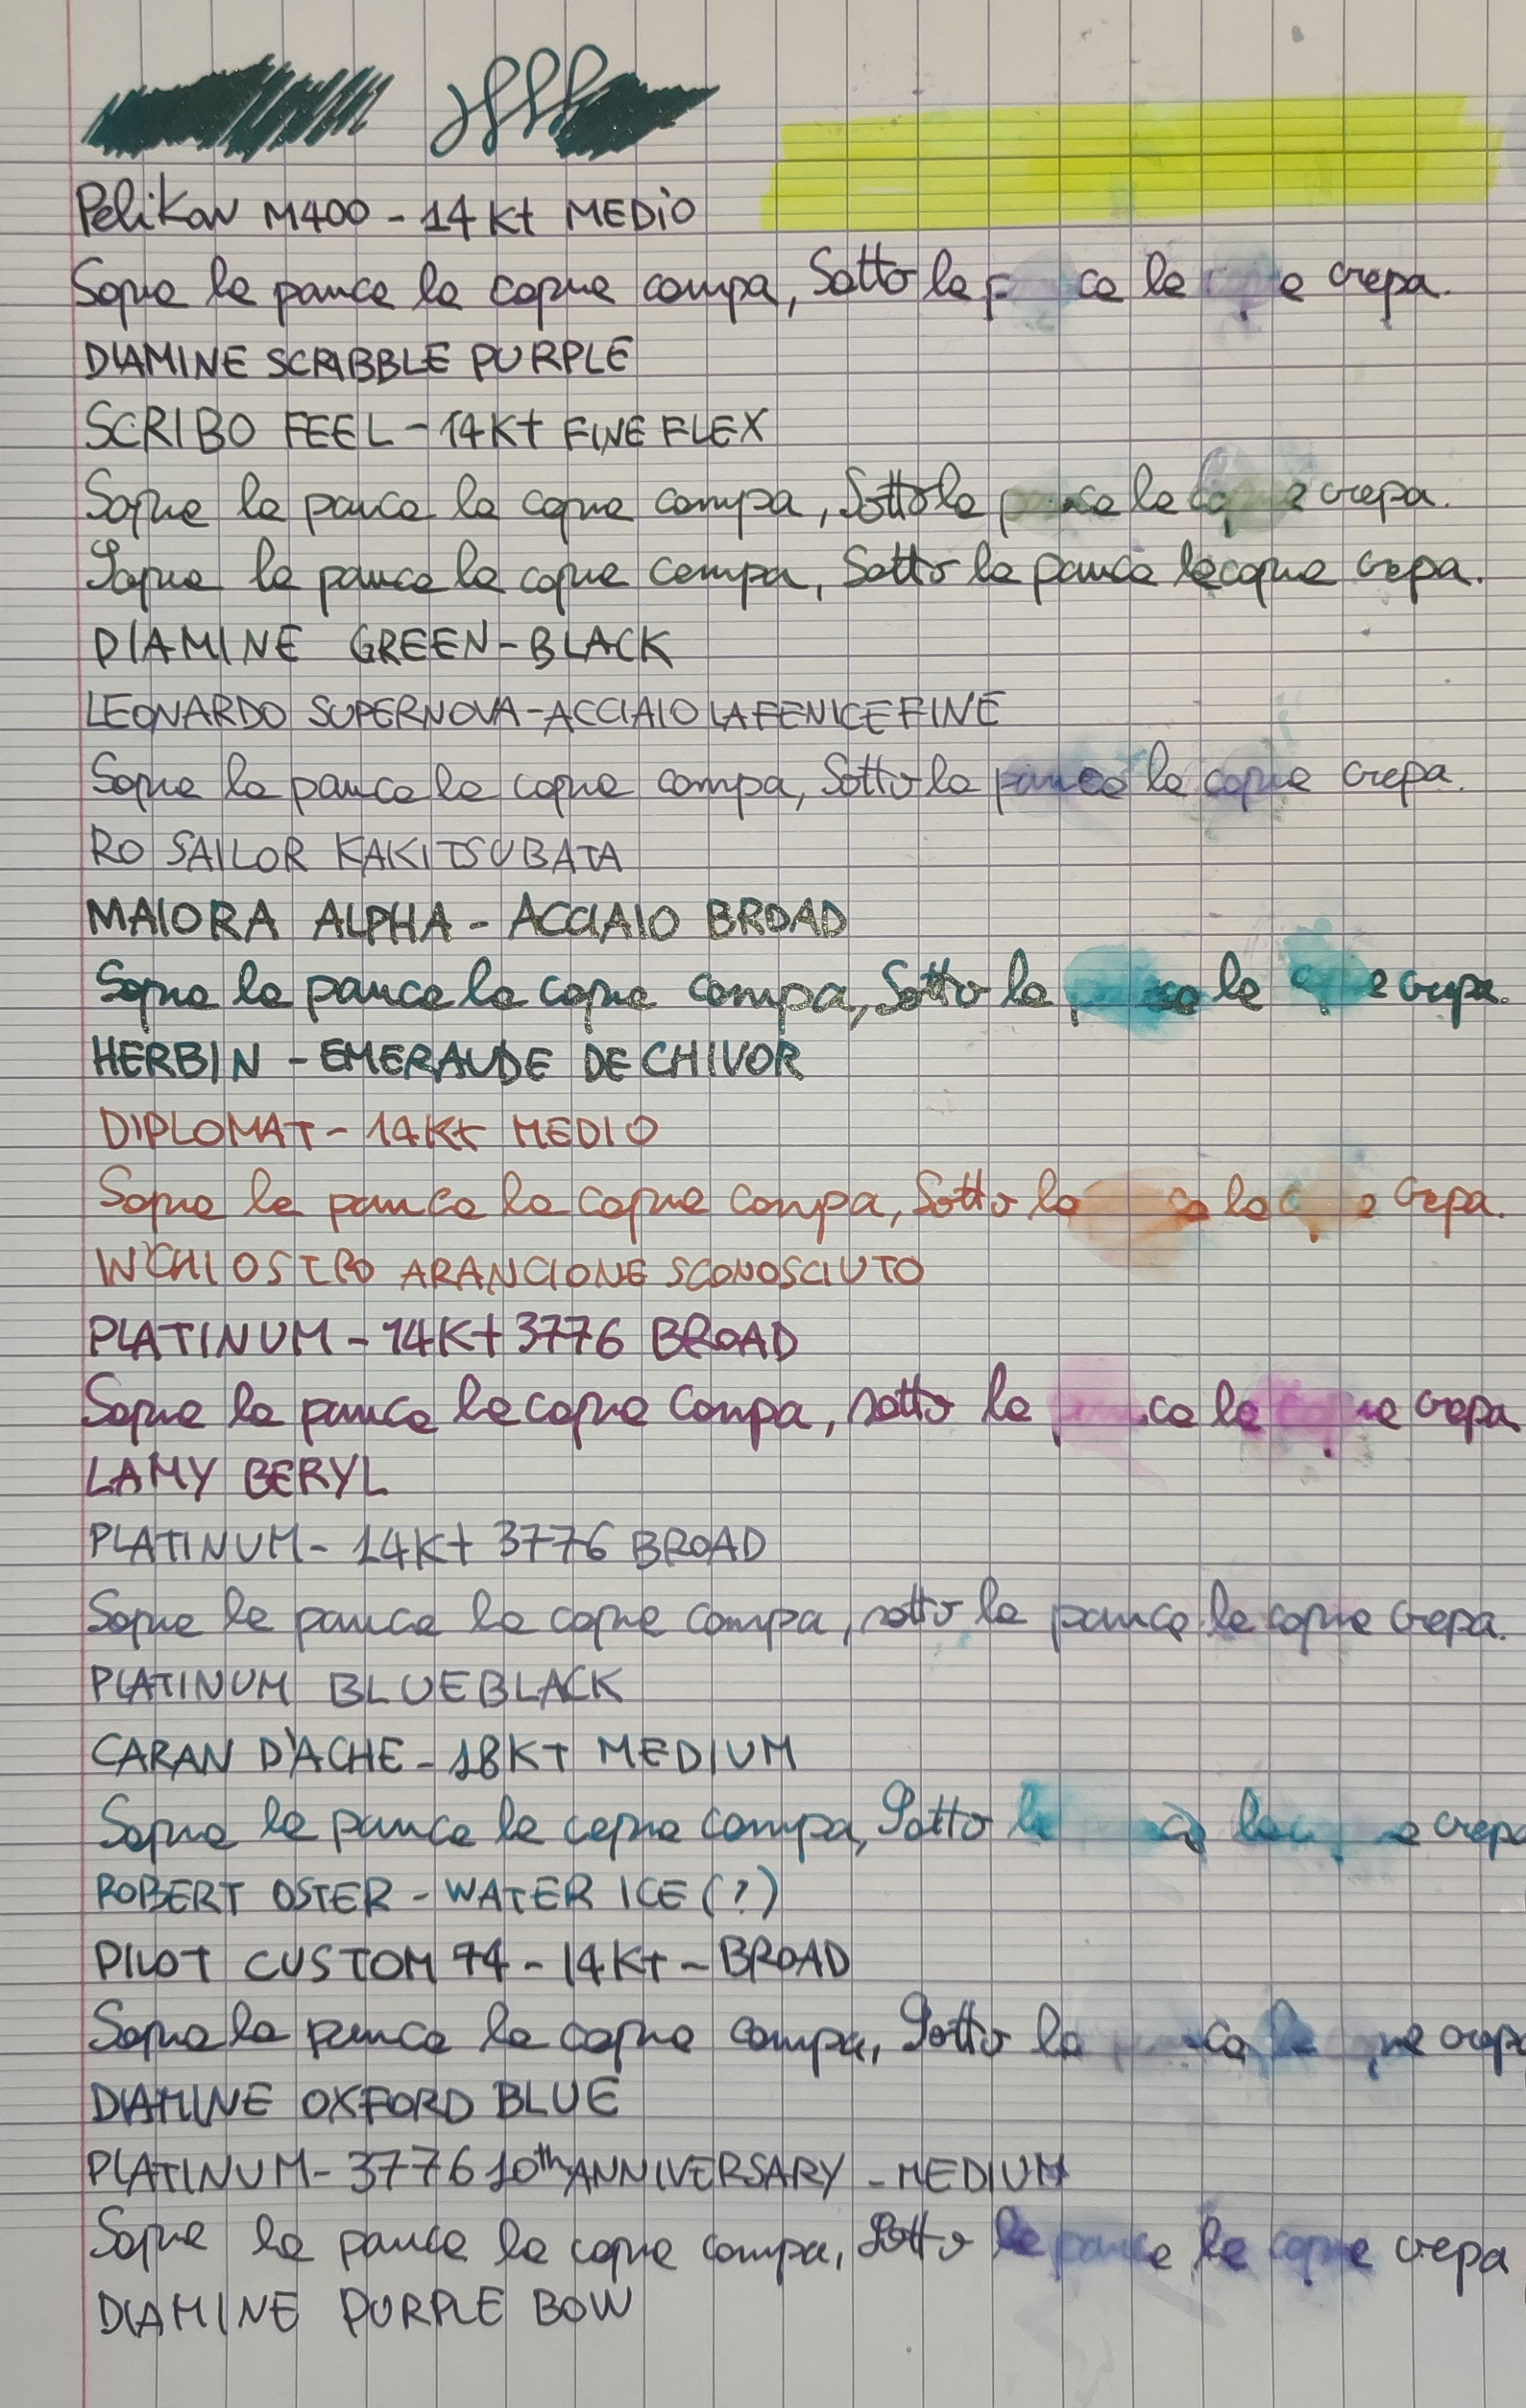 Pelikan M400 - 14Kt MEDIO
Sopra la panca la capra campa, Sotto la p ca la e crepa.
DIAMINE SCRIBBLE PURPLE
SCRIBO FEEL - 14Kt FINE FLEX
Sopra la panca la capra campa, Sotto la panca la capra crepa.
Sopra la panca la capra campa, Sotto la panca la capra crepa.
DIAMINE GREEN-BLACK
LEONARDO SUPERNOVA - ACCIAIO LA FENICE FINE
Sopra la panca la capra campa, Sotto la panca la capra crepa.
RO SAILOR KAKITSUBATA
MAIORA ALPHA - ACCIAIO BROAD
Sopra la panca la capra campa, Sotto la ca la capra crepa.
HERBIN - EMERAUDE DE CHIVOR
DIPLOMAT - 14Kt MEDIO
Sopra la panca la capra campa, Sotto la ca la crepa.
INCHIOSTRO ARANCIONE SCONOSCIUTO
PLATINUM - 14Kt 3776 BROAD
Sopra la panca la capra campa, sotto la panca la capra crepa
LAMY BERYL
PLATINUM - 14Kt 3776 BROAD
Sopra la panca la capra campa, sotto la panca la capra crepa.
PLATINUM BLUEBLACK
CARAN D'ACHE - 18KT MEDIUM
Sopra la panca la capra campa, Sotto la ca la crepa
ROBERT OSTER - WATER ICE (?)
PILOT CUSTOM 74 - 14Kt - BROAD
Sopra la panca la capra campa, Sotto la ca la crepa
DIAMINE OXFORD BLUE
PLATINUM - 3776 10th ANNIVERSARY - MEDIUM
Sopra la panca la capra campa, Sotto la panca la capra crepa
DIAMINE PURPLE BOW